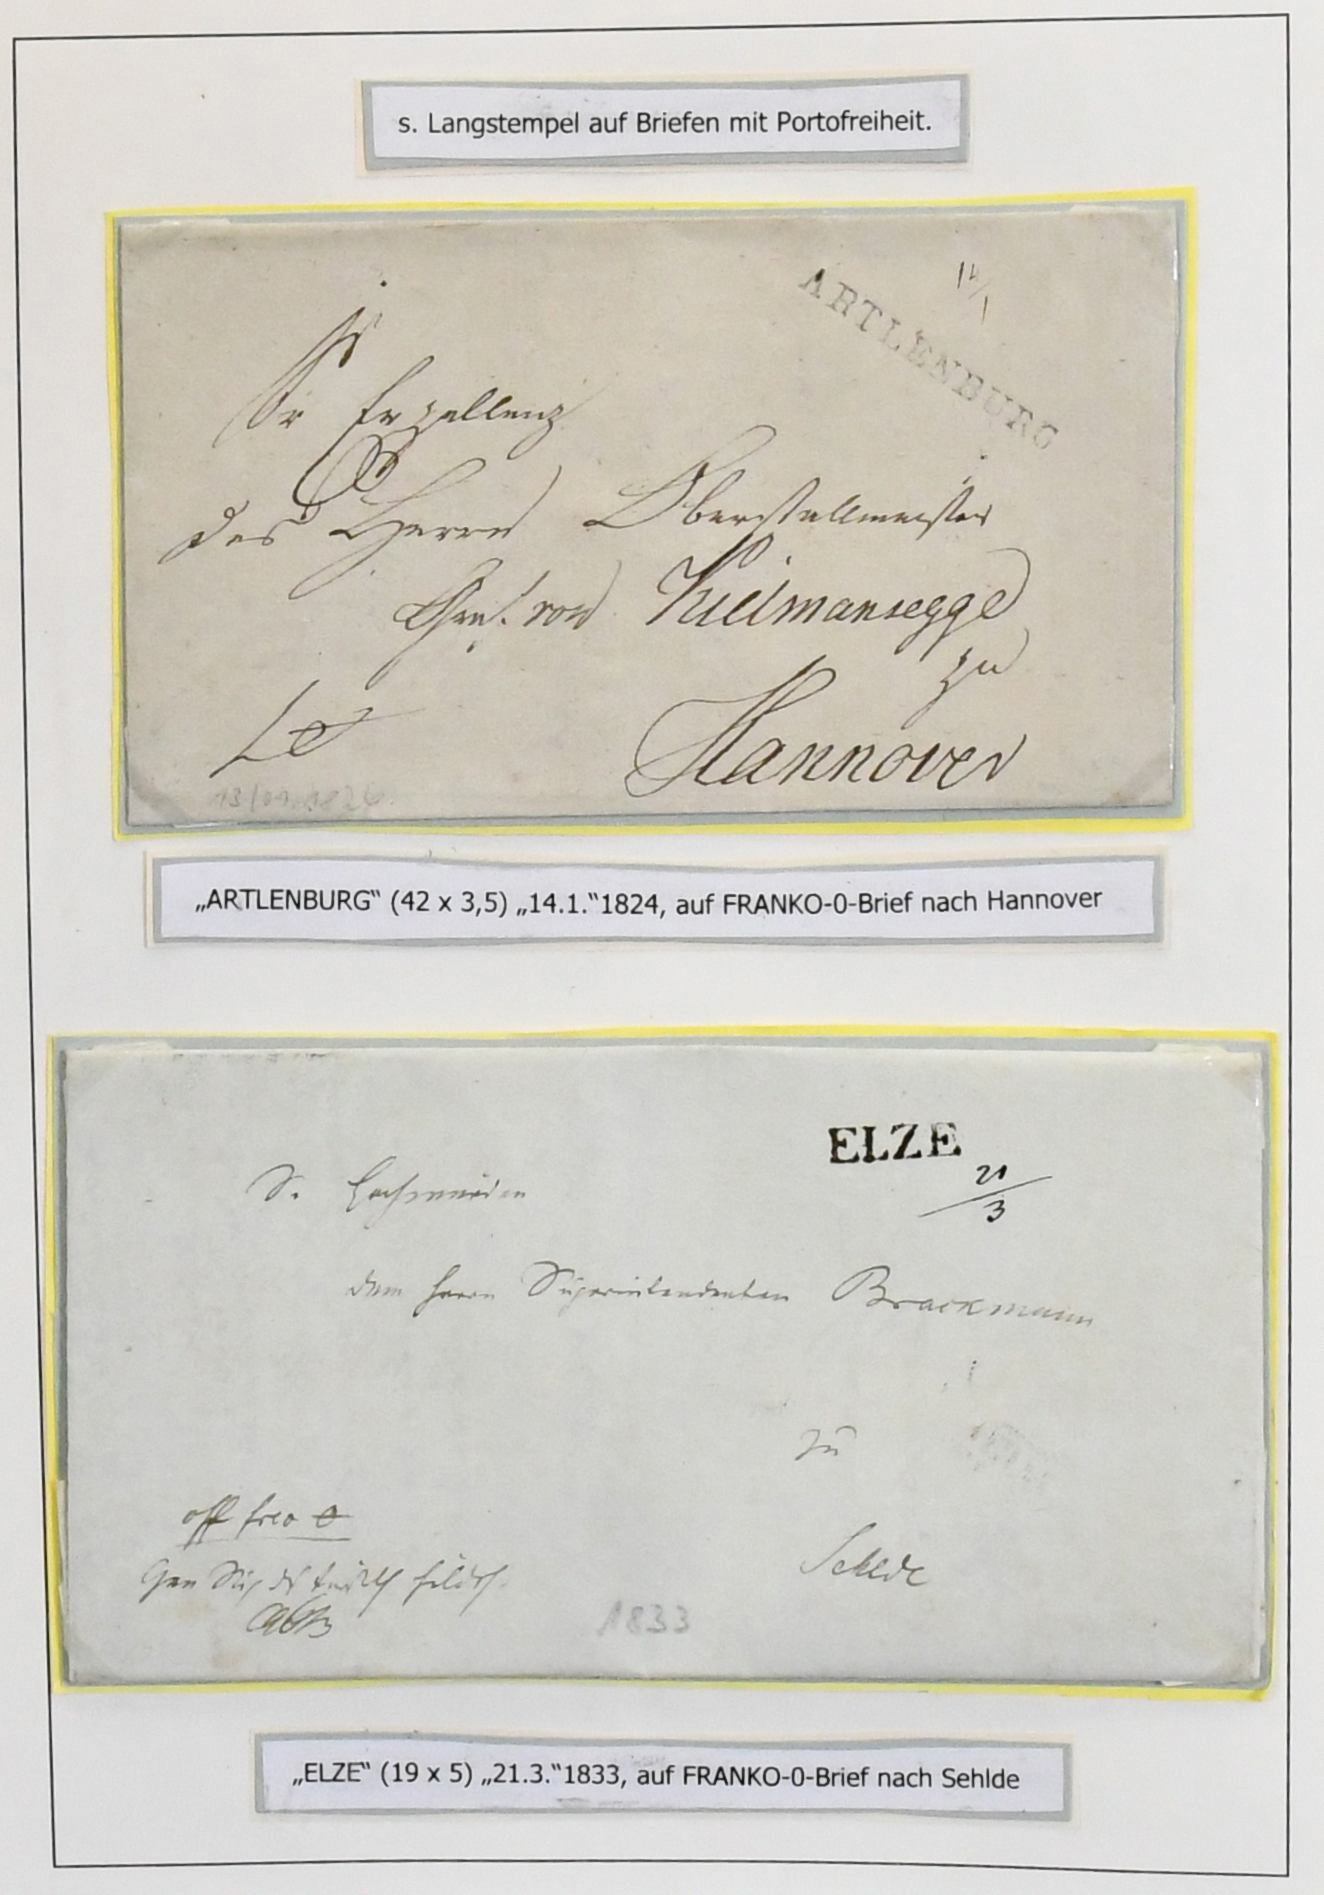 s. Langstempel auf Briefen mit Portofreiheit.
ARTLENBURG
14/1
Sr Exzellenz
des Herrn Oberstallmeister
Graf. von Kielmansegge
zu
Hannover
„ARTLENBURG“ (42 x 3,5) „14.1.“1824, auf FRANKO-0-Brief nach Hannover
ELZE
21/3
S. Hochwürden
dem Herrn Superintendenten Brackmann
zu
Sehlde
off frco 0
1833
„ELZE“ (19 x 5) „21.3.“1833, auf FRANKO-0-Brief nach Sehlde